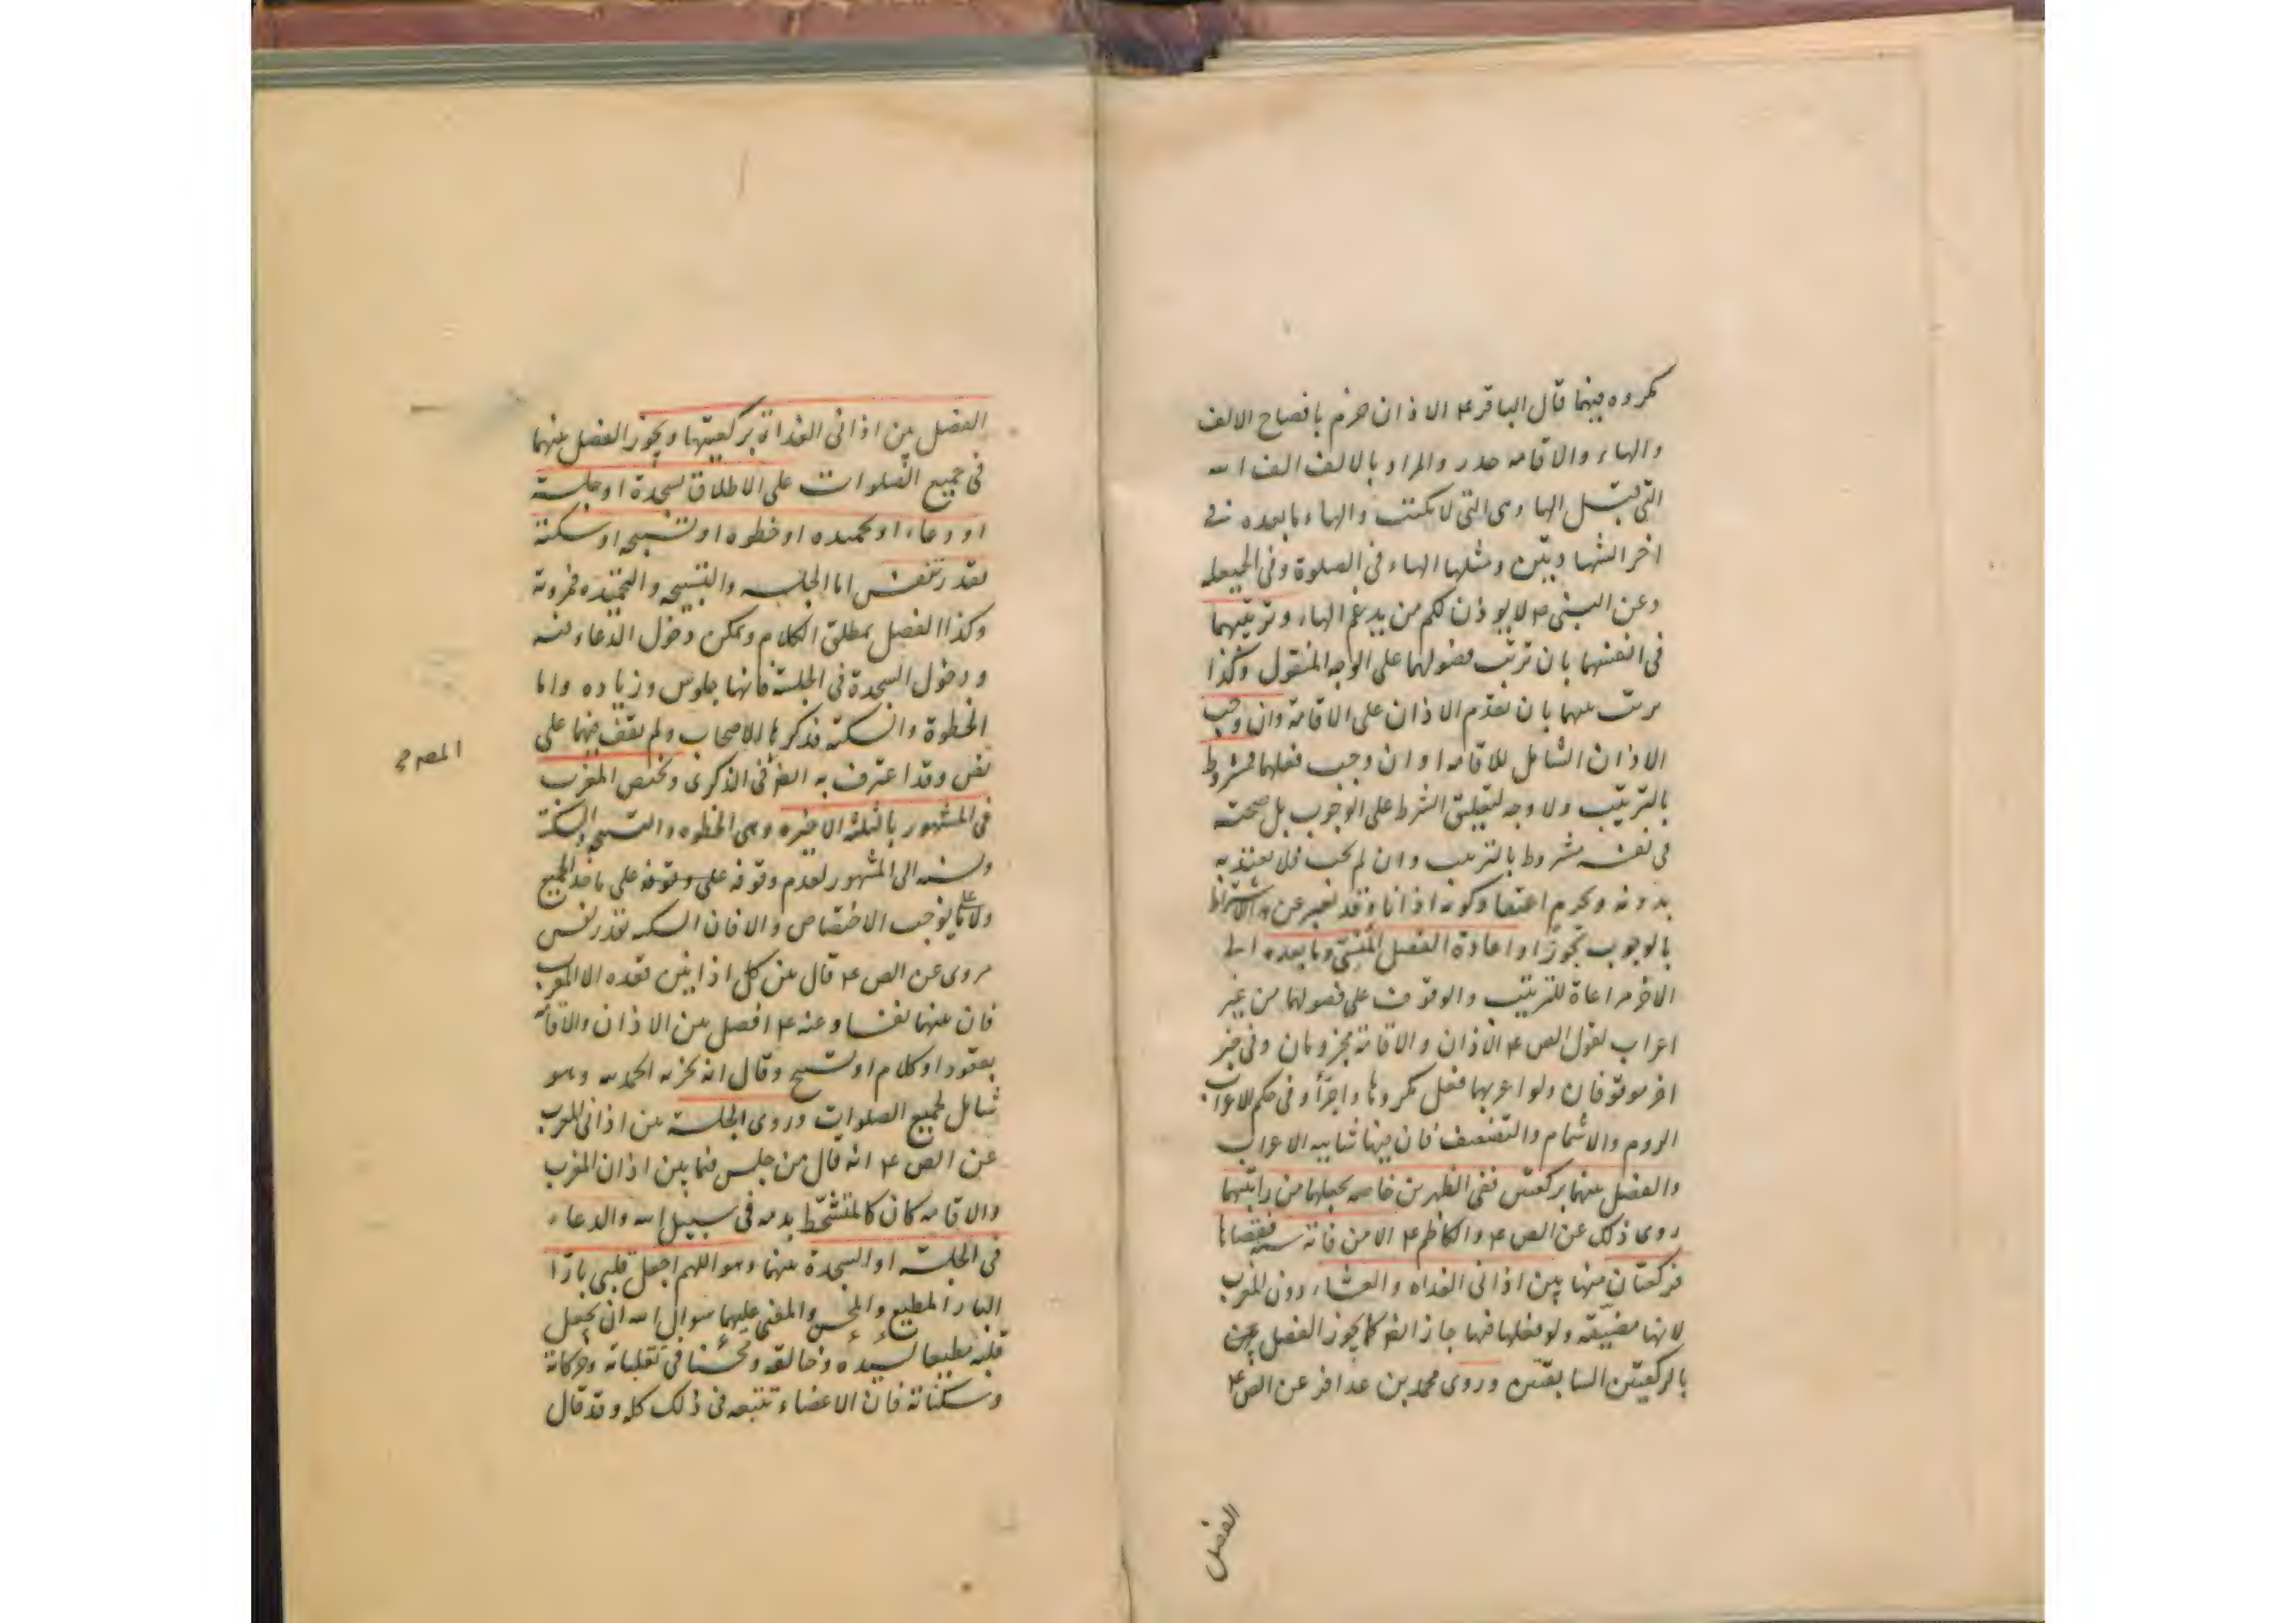 مكروه فيهما قال الباقر ع الاذان جزم بافصاح الالف
والهاء والاقامه حدر والمراد بالالف الف الله
التى قبل الها وهى التى لا تكتب والهاء ما بعده فى
اخر الشهادتين ومثلها الهاء فى الصلوة وفى الحيعله
وعن النبى ص لا يوذن لكم من يدغم الهاء وترتيبهما
فى انفسهما بان ترتب فصولهما على الوجه المنقول وكذا
مرتب بينهما بان يقدم الاذان على الاقامة وان وجب
الاذان الشامل للاقامه او ان وجب فعلهما مشروط
بالترتيب ولا وجه لتعليق الشرط على الوجوب بل صحته
فى نفسه مشروط بالترتيب وان لم يجب فلا يعتد به
بدونه ويحرم اعتقاد كونه اذانا وقد يعبر عن الاشتراط
بالوجوب تجوزا واعادة الفصل المنسى وما بعده الى
الاخر مراعاة للترتيب والوقوف على فصولهما من غير
اعراب لقول الص ع الاذان والاقامة مجزومان وفى خبر
اخر موقوفان ولو اعربهما فعل مكروها واجزأ وفى حكم الاعراب
الروم والاشمام والتضعيف فان فيها شايبه الاعراب
والفصل بينهما بركعتين ففى الظهرين خاصه يجعلهما من راتبتهما
روى ذلك عن الص ع والكاظم ع الا من فاتته سنه فقضاها
فركعتان منها بين اذانى الغداه والعشاء دون المغرب
لانها مضيقه ولو فعلها فيها جاز ايضا كما يجوز الفصل بين
بالركعتين السابقتين وروى محمد بن عذافر عن الص ع
الفصل
الفصل بين اذانى الغداة بركعتيها ويجوز الفصل بينهما
فى جميع الصلوات على الاطلاق بسجدة او جلسة
او دعاء او تحميده او خطوه او تسبيحه او سكتة
بقدر تنفس اما الجلسه والتسبيحه والتحميده فمروية
وكذا الفصل بمطلق الكلام ويمكن دخول الدعاء فيه
ودخول السجدة فى الجلسة فانها جلوس وزياده واما
الخطوة والسكتة فذكرها الاصحاب ولم نقف فيهما على
نص وقد اعترف به المص فى الذكرى ويختص المغرب
فى المشهور بالثلثه الاخيره وهى الخطوه والتسبيحه والسكتة
ونسبه الى المشهور لعدم وقوفه على وقوفه على ماخذ الجميع
ولا على ما يوجب الاختصاص والا فان السكته بقدر نفس
مروى عن الص ع قال بين كل اذانين قعده الا المغرب
فان بينهما نفسا وعنه ع افصل بين الاذان والاقامة
بقعود او كلام او تسبيح وقال انه يجزيه الحمد لله وهو
شامل لجميع الصلوات وروى الجلسة بين اذانى المغرب
عن الص ع انه قال من جلس فيما بين اذان المغرب
والاقامه كان كالمتشحط بدمه فى سبيل الله والدعاء
فى الجلسة او السجدة بينهما وهو اللهم اجعل قلبى بارا
البار المطيع والمحسن والمعنى عليهما سوال الله ان يجعل
قلبه مطيعا لسيده وخالقه ومحسنا فى تقلباته وحركاته
وسكناته فان الاعضاء تتبعه فى ذلك كله وقد قال